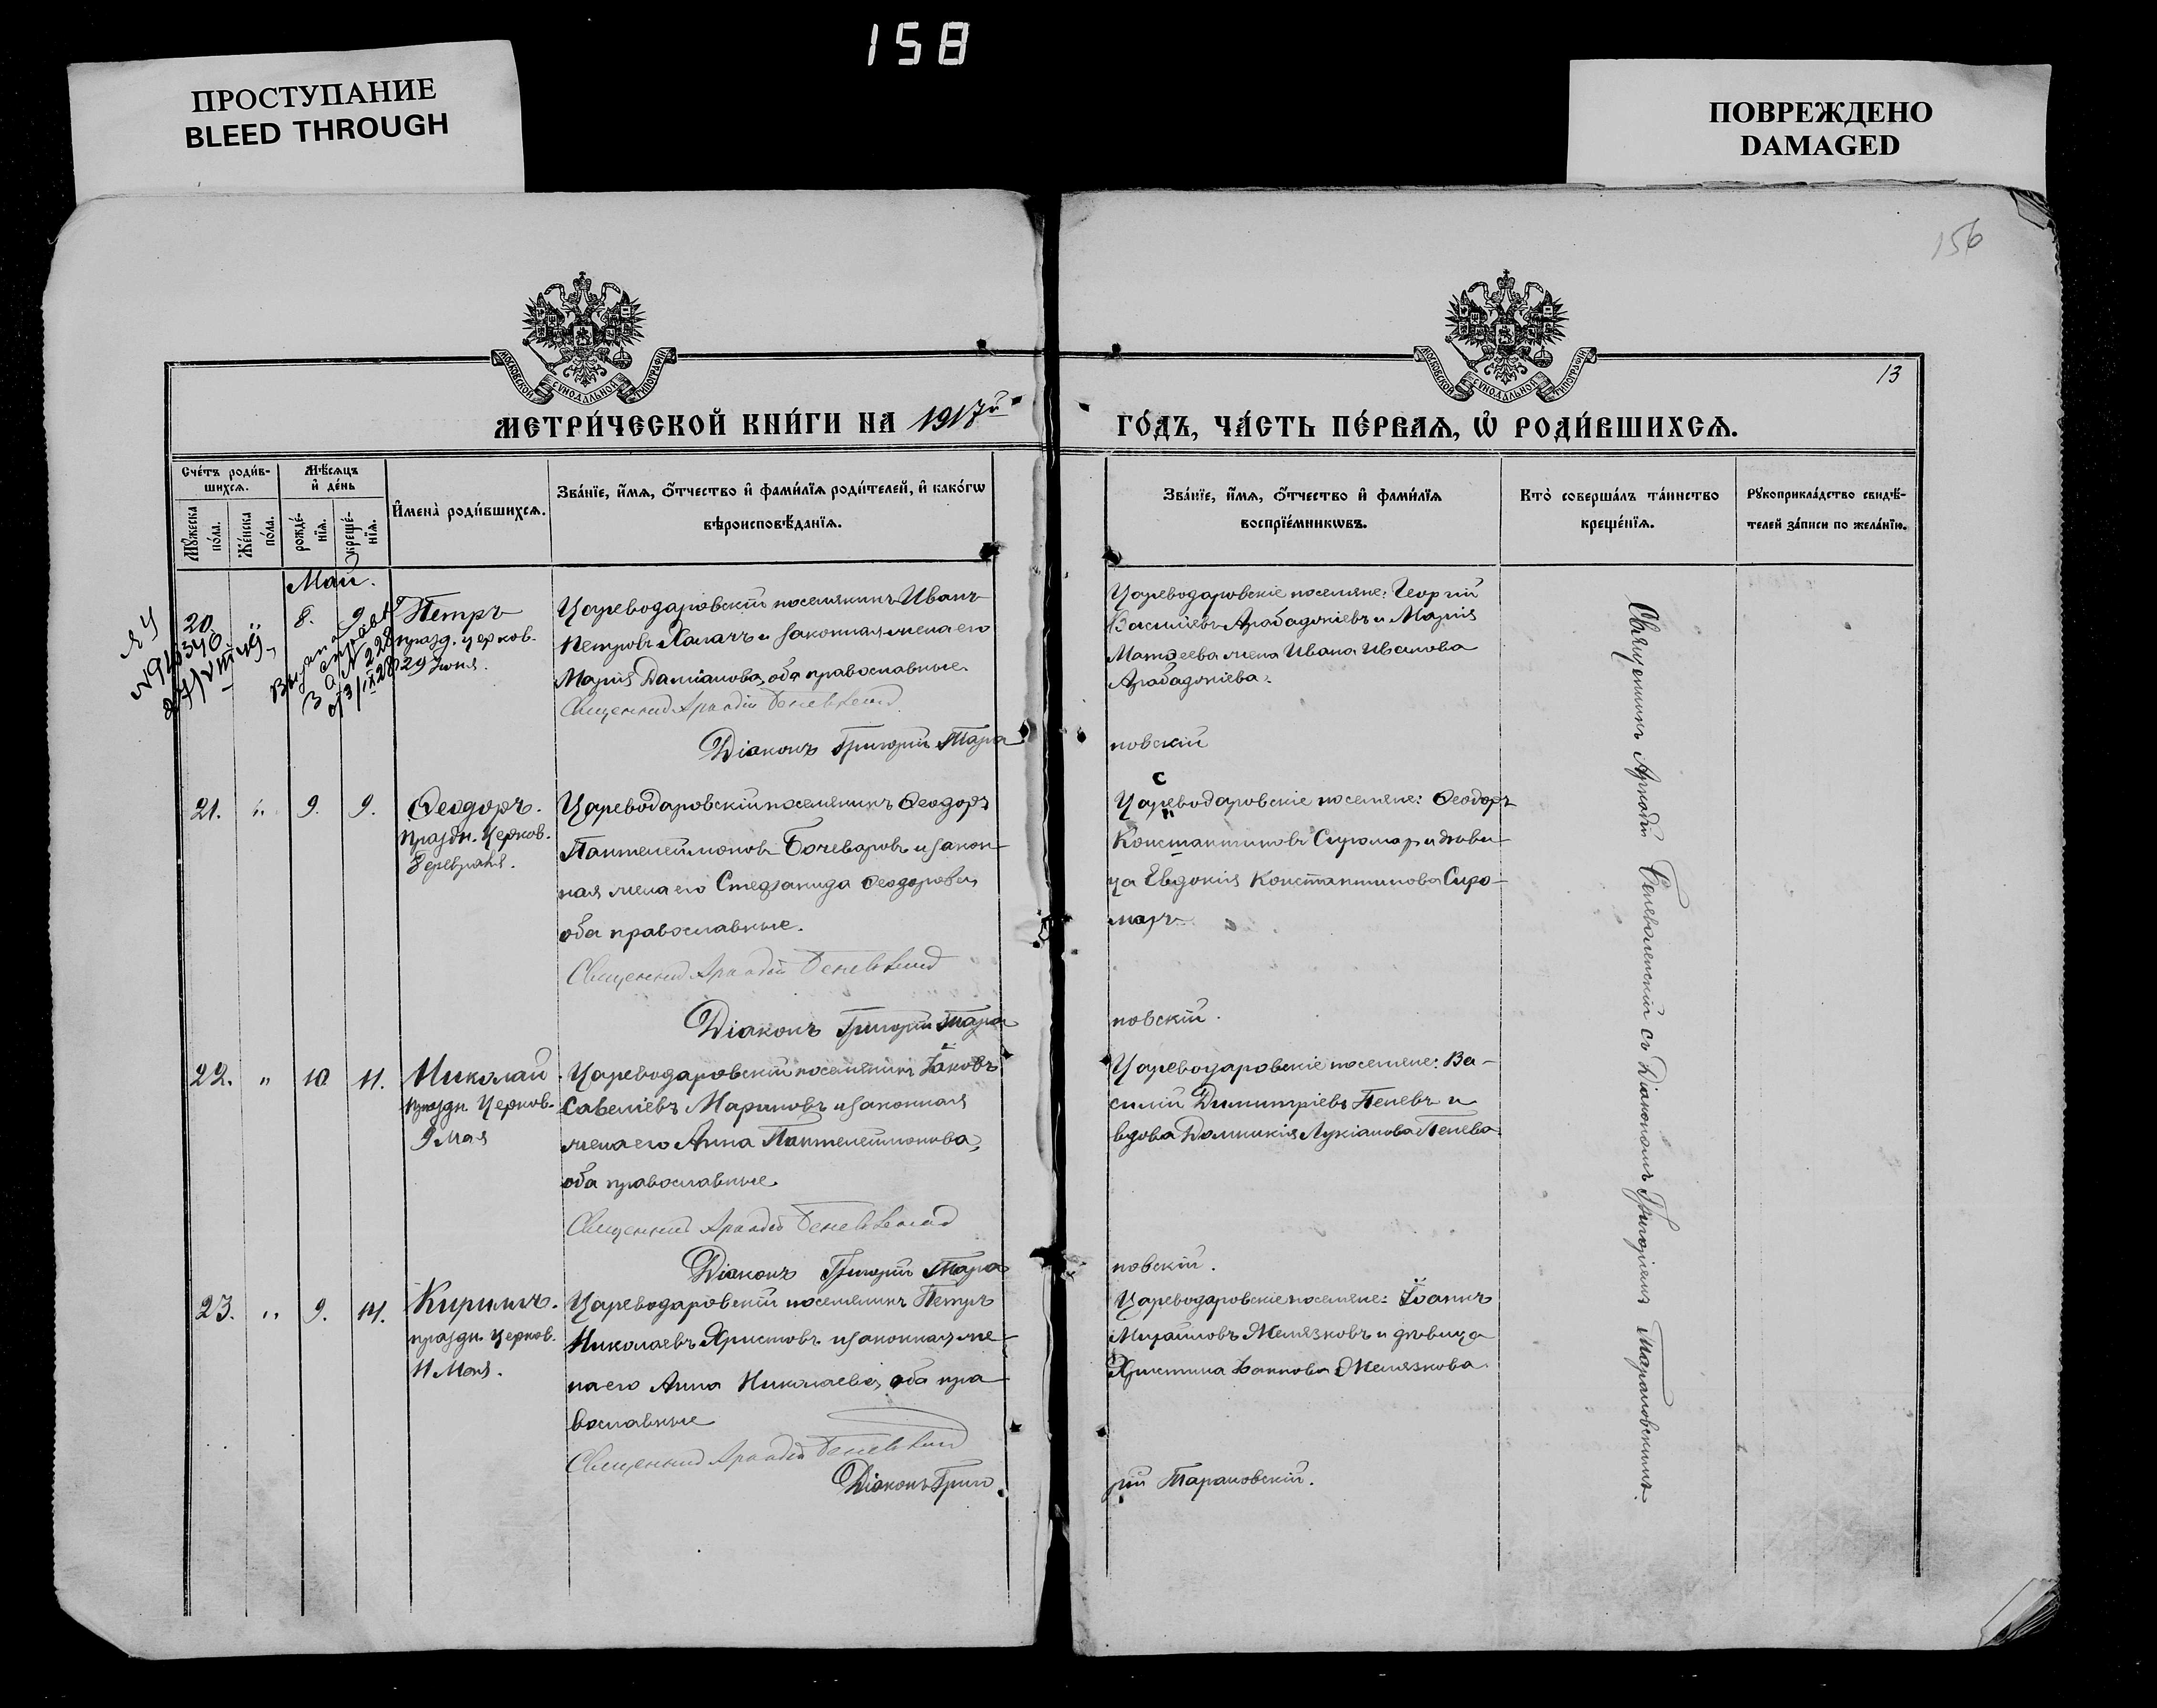 158
ПРОСТУПАНИЕ
BLEED THROUGH
ПОВРЕЖДЕНО
DAMAGED
156
13
МОСКОВСКОЙ СѴНОДАЛЬНОЙ ТИПОГРАФІИ
МОСКОВСКОЙ СѴНОДАЛЬНОЙ ТИПОГРАФІИ
МЕТРИ́ЧЕСКОЙ КНИ́ГИ НА 1917й
ГО́ДЪ, ЧА́СТЬ ПЕ́РВАѦ, Ѽ РОДИ́ВШИХСѦ.
Сче́тъ роди́в-
шихсѧ.
Мꙋ́жеска по́ла.
Же́нска по́ла.
Мѣ́сѧцъ и҆ де́нь
рожде́-
нїѧ.
креще́-
нїѧ.
И҆мена̀ роди́вшихсѧ.
Зва́нїе, и҆́мѧ, ѻ҆́тчество и҆ фами́лїѧ роди́телей, и҆ како́гѡ
вѣроисповѣ́данїѧ.
Зва́нїе, и҆́мѧ, ѻ҆́тчество и҆ фами́лїѧ
воспрїе́мникѡвъ.
Кто̀ соверша́лъ та́инство
креще́нїѧ.
Рꙋкоприкла́дство свидѣ́-
телей за́писи по жела́нїю.
Май.
20 " 8. 9.
Выдана справ
за N 228
Петръ
празд. церков.
29 Іюня.
Цареводаровскій поселянинъ Иванъ
Петровъ Халачъ и законная жена его
Марія Даміанова, оба православные
Священник Аркадій Беневоленс
Діаконъ Григорій Тара
Цареводаровскіе поселяне: Георгій
Васильевъ Арабаджіевъ и Марія
Матѳеева жена Ивана Иванова
Арабаджіева.
новскій
21. " 9. 9.
Ѳеодоръ.
праздн. церков.
8 февраля.
Цареводаровскій поселянинъ Ѳеодоръ
Пантелеймоновъ Бочеваровъ и закон-
ная жена его Стефанида Ѳеодорова,
оба православные.
Священник Аркадій Беневоленс
Діаконъ Григорій Тара
Цареводаровскіе поселяне: Ѳеодоръ
Константиновъ Сиромар и дѣви-
ца Евдокія Константинова Сиро-
маръ
новскій.
22. " 10 11.
Николай
праздн. церков.
9 Мая
Цареводаровскій поселянинъ Іаковъ
Савеліевъ Мариновъ и законная
жена его Анна Пантелеймонова,
оба православные
Священник Аркадій Беневоленс
Діаконъ Григорій Тара
Цареводаровскіе поселяне: Ва-
силій Димитріевъ Пеневъ и
вдова Домникія Лукіанова Пенева
новскій.
23. " 9. 14.
Кириллъ.
праздн. церков.
11 Мая.
Цареводаровскій поселянинъ Петръ
Николаевъ Христовъ и законная же-
на его Анна Николаева, оба пра
вославные
Священник Аркадій Беневоленс
Діаконъ Григо
Цареводаровскіе поселяне: Іоаннъ
Михайловъ Желязковъ и дѣвица
Христина Іоаннова Желязкова.
рій Тарановскій.
Священникъ Аркадій Беневоленскій съ Діакономъ Григоріемъ Тарановскимъ.